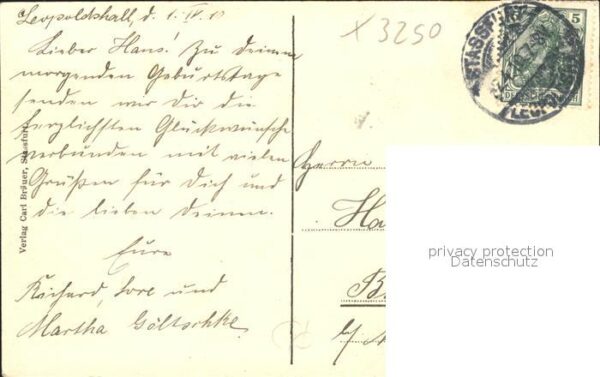 Leopoldshall, d. 1. IV. 10
Lieber Hans! Zu Deinem
morgenden Geburtstage
senden wir Dir die
herzlichsten Glückwünsche
verbunden mit vielen
Grüßen für Dich und
die lieben Deinen.
Eure
Richard, Lore und
Martha Göltschke
Verlag Carl Bräuer, Stassfurt
X 3250
STASSFURT
LEOPOL
5
DEUTSCHES REICH
Herrn
Ha
B
b/
privacy protection
Datenschutz